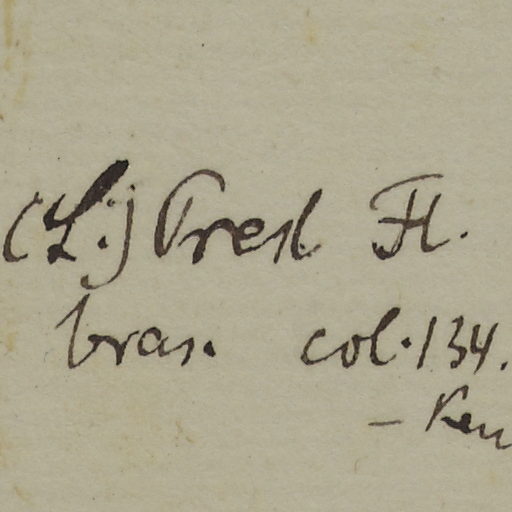 (L.) Presl Fl.
bras. col. 134.
–